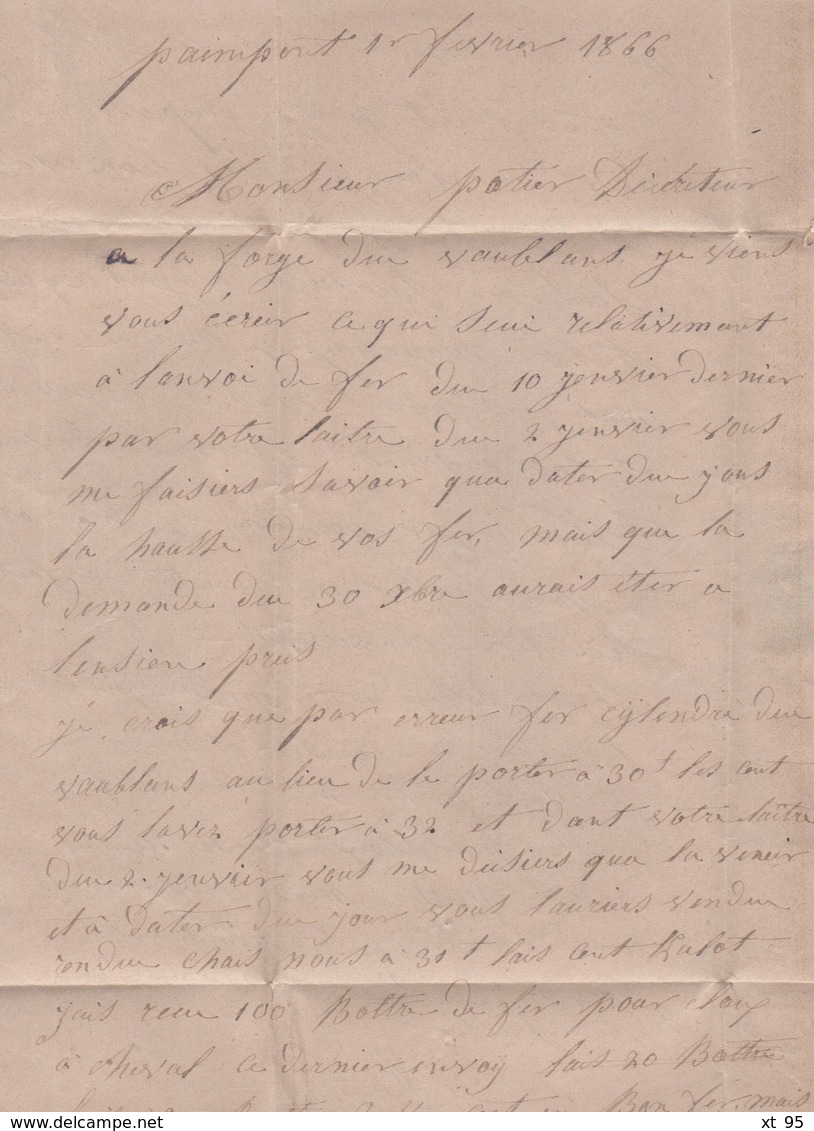 paimpont 1r fevrier 1866
Monsieur potier Diréteur
a la forge du vaublans je viens
vous écrir ce qui suie relativement
à lanvoi de fer du 10 jenvier dernier
par votre laitre du 2 jenvier vous
me faisiers savoir qua dater du jous
la hausse de vos fer, mais que la
demande du 30 xbre aurais éter a
lensien preis
je crois que par erreur fer cylendre du
vaublans au lieu de le porter à 30f les cent
vous lavez porter à 32 et dant votre laitre
du 2 jenvier vous me deisiers qua la veneir
et à dater du jour vous lauriers vendu
rendu chais nous à 31f lais cent kulot
jais recu 100 Botte de fer pour cloux
à cheval ce dernier envoy lais 20 Botte
Bon fer, mais
xt 95